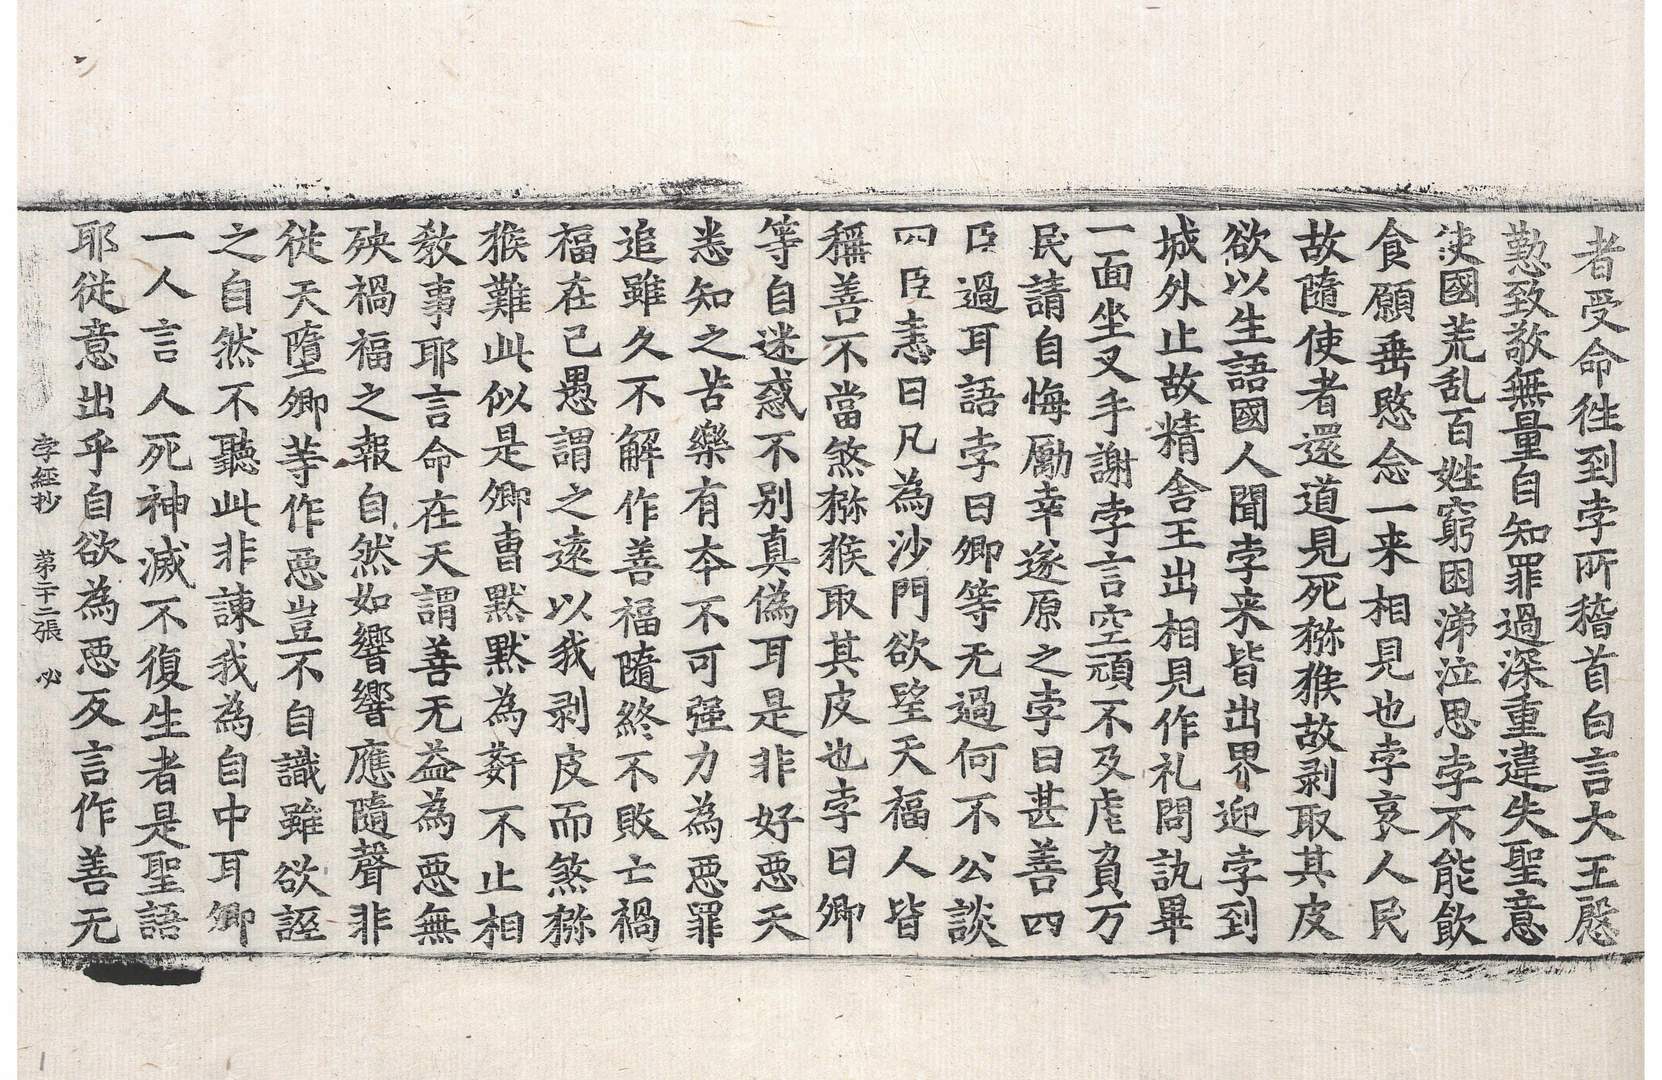 者受命徃到孛所稽首白言大王慇
懃致敬無量自知罪過深重違失聖意
使國荒乱百姓窮困涕泣思孛不能飮
食願垂愍念一来相見也孛哀人民
故隨使者還道見死猕猴故剥取其皮
欲以生語國人聞孛来皆出界迎孛到
城外止故精舍王出相見作礼問訊畢
一面坐叉手謝孛言空頑不及虐負万
民請自悔勵幸遂原之孛曰甚善四
臣過耳語孛曰卿等无過何不公談
四臣恚曰凡為沙門欲望天福人皆
稱善不當煞猕猴取其皮也孛曰卿
等自迷惑不别真偽耳是非好惡天
悉知之苦樂有夲不可强力為惡罪
追雖久不解作善福隨終不敗亡禍
福在己愚謂之遠以我剥皮而煞猕
猴難此似是卿曹默默為姧不止相
敎事耶言命在天謂善无益為惡無
殃禍福之報自然如響響應隨聲非
従天墮卿等作惡豈不自識雖欲誣
之自然不聽此非諌我為自中耳卿
一人言人死神滅不復生者是聖語
耶従意出乎自欲為惡反言作善无
孛經抄　第二十二張　必